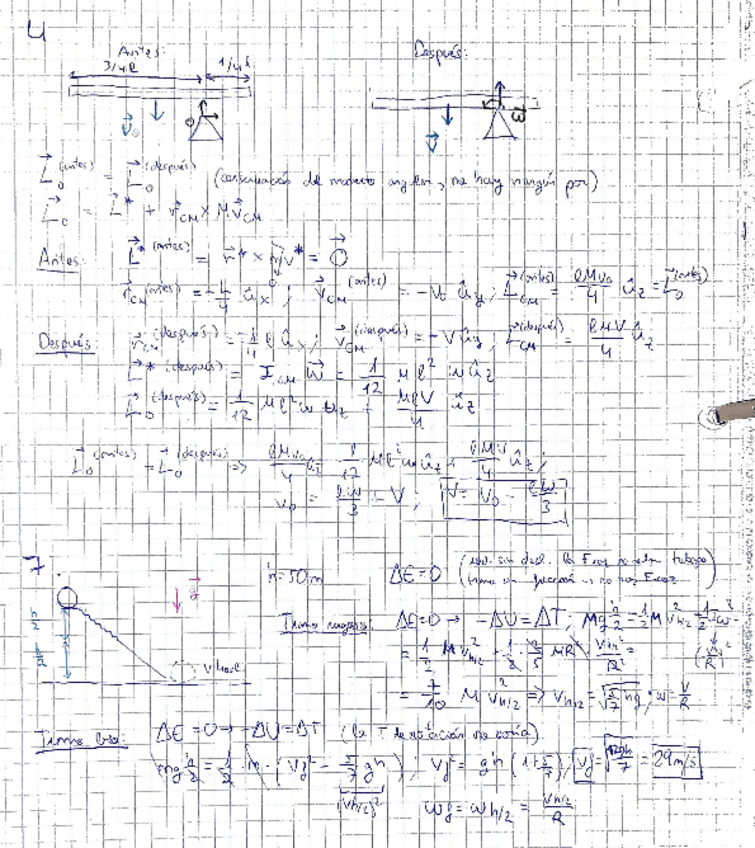 4
Antes:
3/4 l
1/4 l
Después:
V₀
O
V
ω
L₀^(antes) = L₀^(después) (conservación del momento angular, no hay ningún par)
L₀ = L* + r_CM × M V_CM
Antes: L*^(antes) = r* × m v* = 0
r_CM^(antes) = -l/4 û_x ; V_CM^(antes) = -V₀ û_y ; L_CM^(antes) = lMv₀/4 û_z = L₀^(antes)
Después: r_CM^(después) = -1/4 l û_x ; V_CM^(después) = -V û_y ; L_CM^(después) = lMV/4 û_z
L*^(después) = I_CM ω = 1/12 M l² ω û_z
L₀^(después) = 1/12 M l² ω û_z + MlV/4 û_z
L₀^(antes) = L₀^(después) ⇒ lMv₀/4 û_z = 1/12 M l² ω û_z + lMV/4 û_z ;
v₀ = lω/3 + V ; V = V₀ - lω/3
7.
h/2
h/2
g
v final
h = 50m
ΔE = 0
Tramo rugoso: ΔE = 0 → -ΔU = ΔT, Mg h/2 = 1/2 M v²_h/2 + 1/2 I ω² =
= 1/2 M v²_h/2 + 1/2 · 2/5 M R² v²_h/2 / R² =
= 7/10 M v²_h/2 ⇒ v_h/2 = √(5/7 hg) ; ω = V/R
Tramo liso: ΔE = 0 → -ΔU = ΔT (la T de rotación no varía)
mg h/2 = 1/2 · m · (Vf² - 5/7 gh) ; Vf² = gh (1 + 5/7) ; Vf = √(12gh/7) = 29 m/s
(v_h/2)²
ωf = ω h/2 = V_h/2 / R